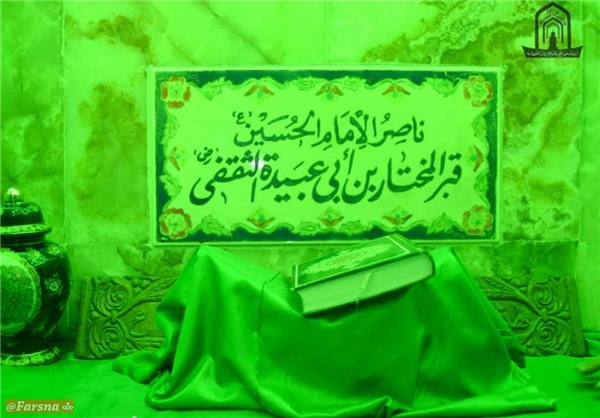 ناصِرُ الإِمَامِ الحُسَيْن ع
قبر المختار بن أبي عبيدة الثقفي رض
@Farsna